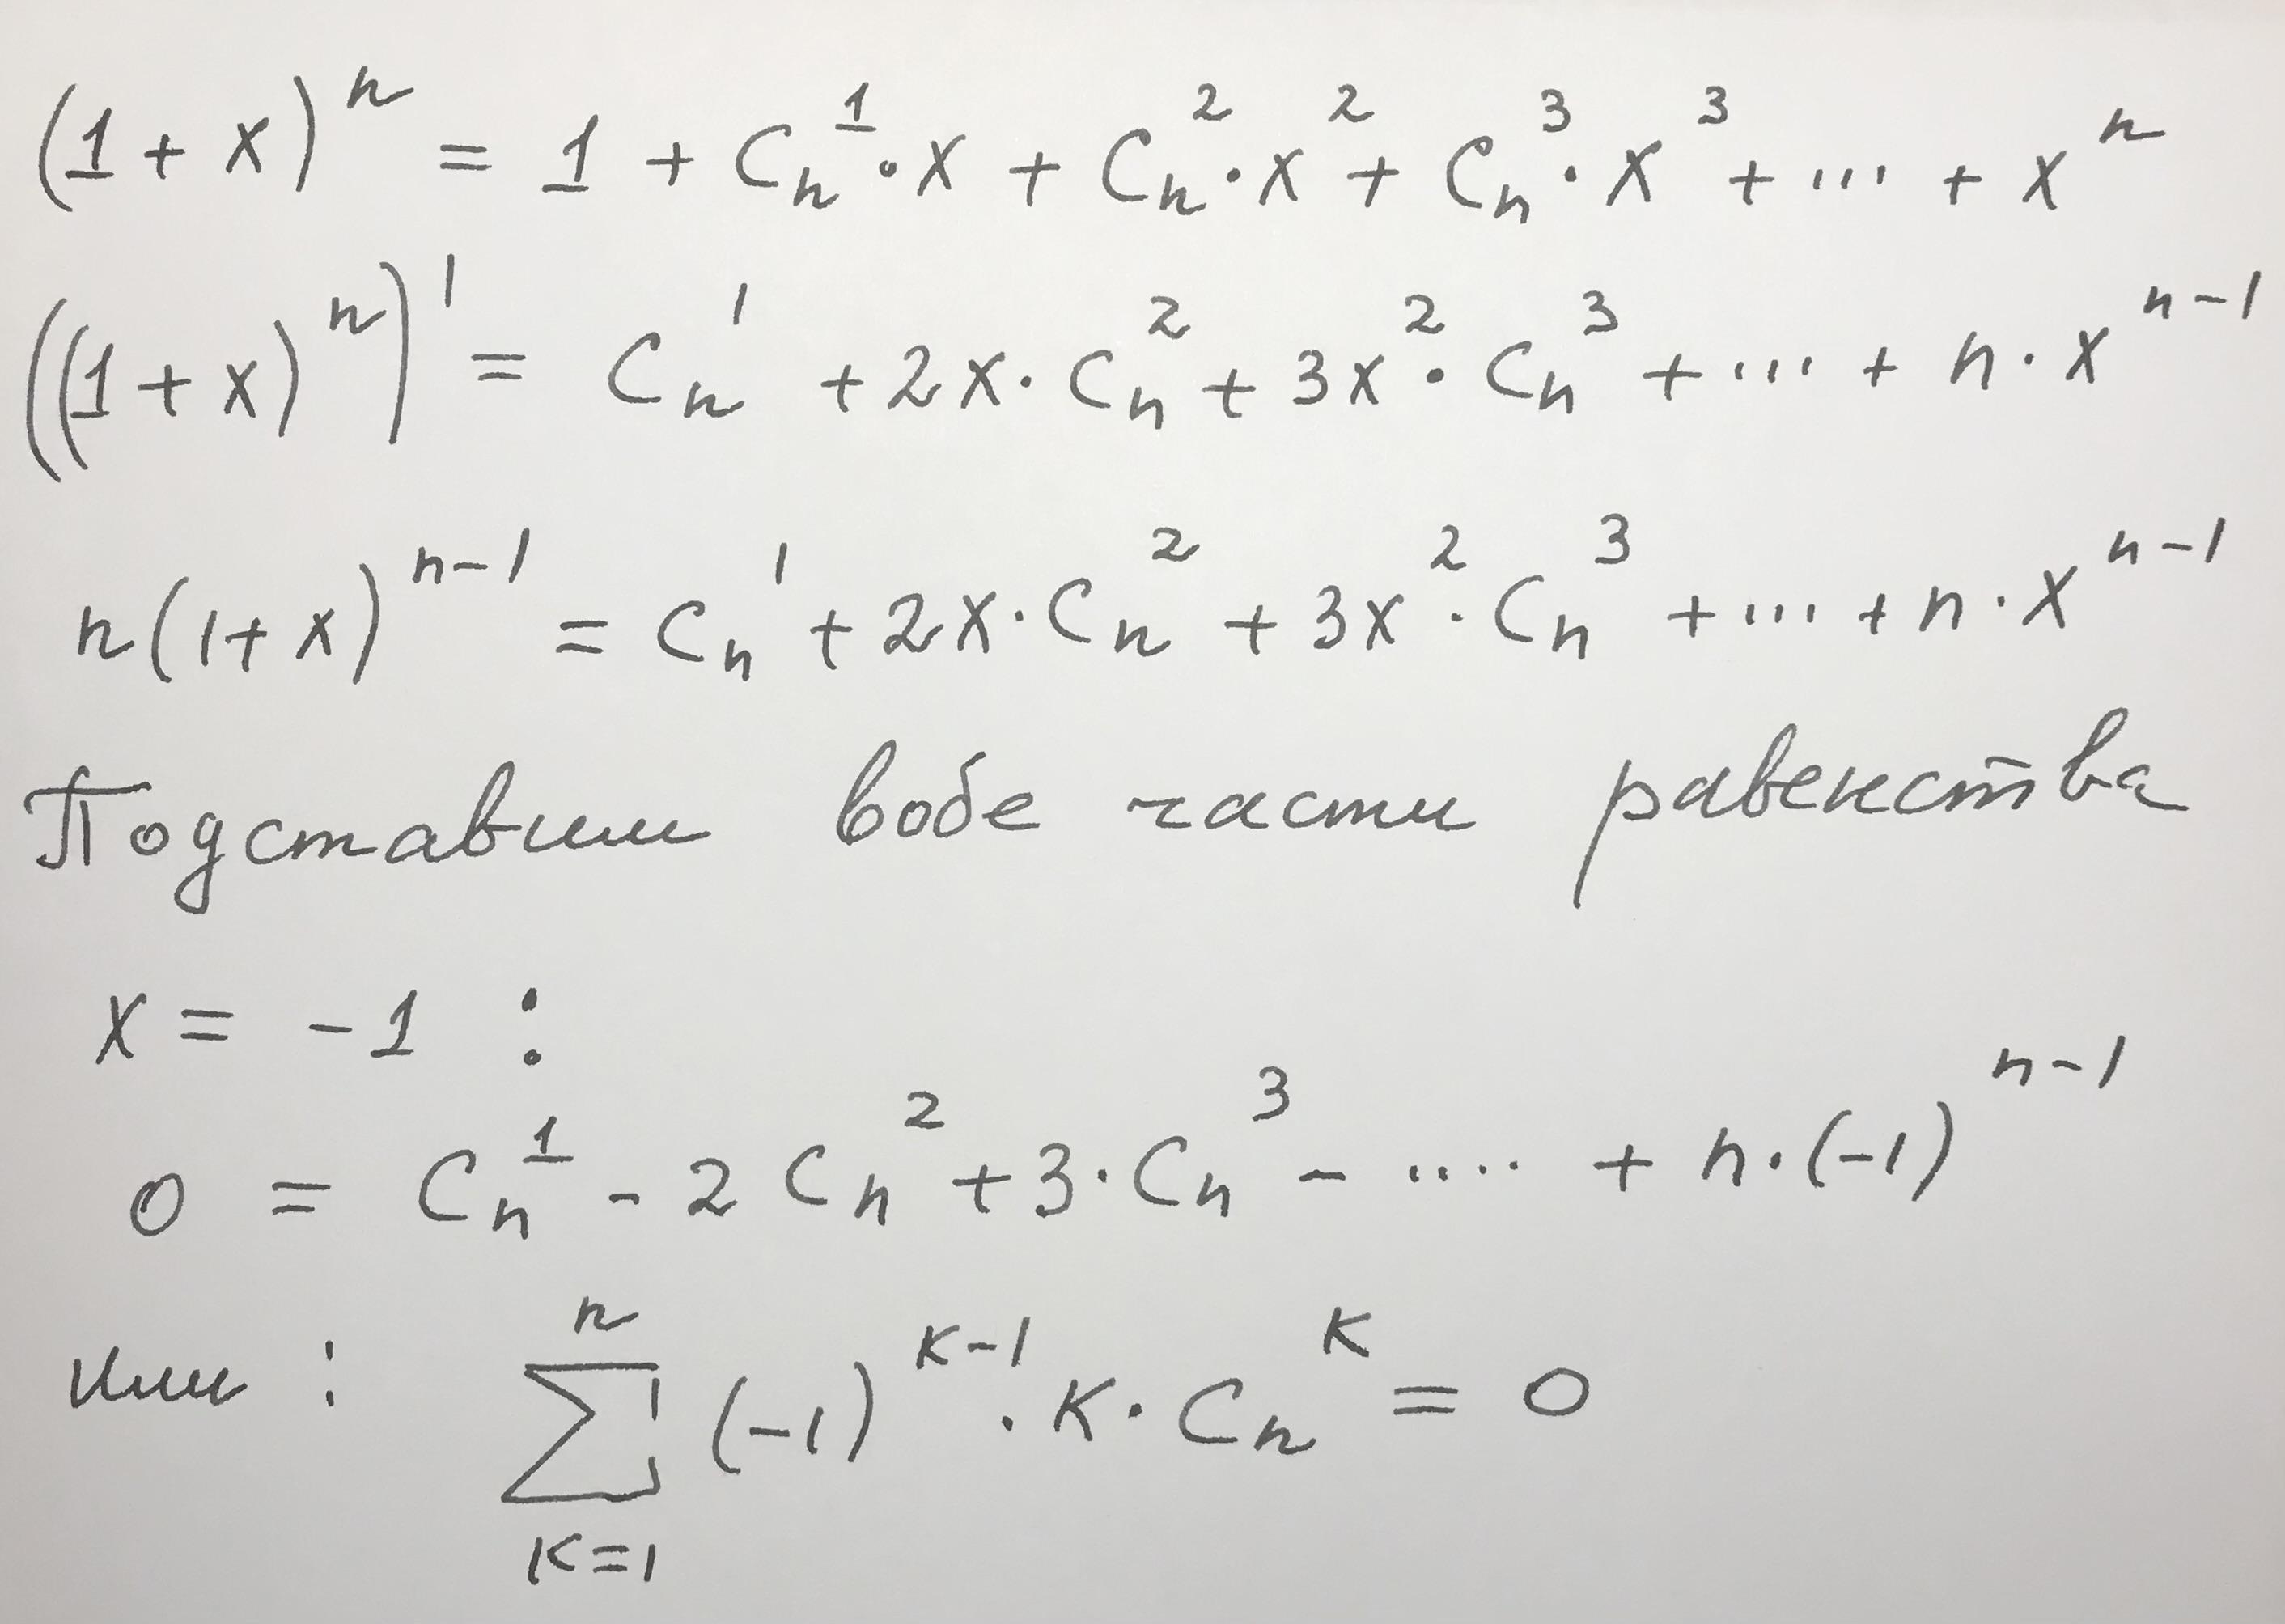 (1 + x)ⁿ = 1 + Cₙ¹ · x + Cₙ² · x² + Cₙ³ · x³ + ... + xⁿ
((1 + x)ⁿ)' = Cₙ¹ + 2x · Cₙ² + 3x² · Cₙ³ + ... + n · xⁿ⁻¹
n(1 + x)ⁿ⁻¹ = Cₙ¹ + 2x · Cₙ² + 3x² · Cₙ³ + ... + n · xⁿ⁻¹
Подставим вобе части равенства
x = -1 :
0 = Cₙ¹ - 2 Cₙ² + 3 · Cₙ³ - .... + n · (-1)ⁿ⁻¹
или : ∑ₖ₌₁ⁿ (-1)ᵏ⁻¹ · k · Cₙᵏ = 0